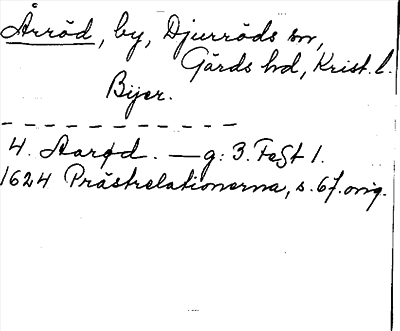 Årröd, by, Djurröds sn,
Gärds hd, Krist. l.
Byer.
4. Aarød. — g: 3. Fest 1.
1624 Prästrelationerna, s. 67. orig.